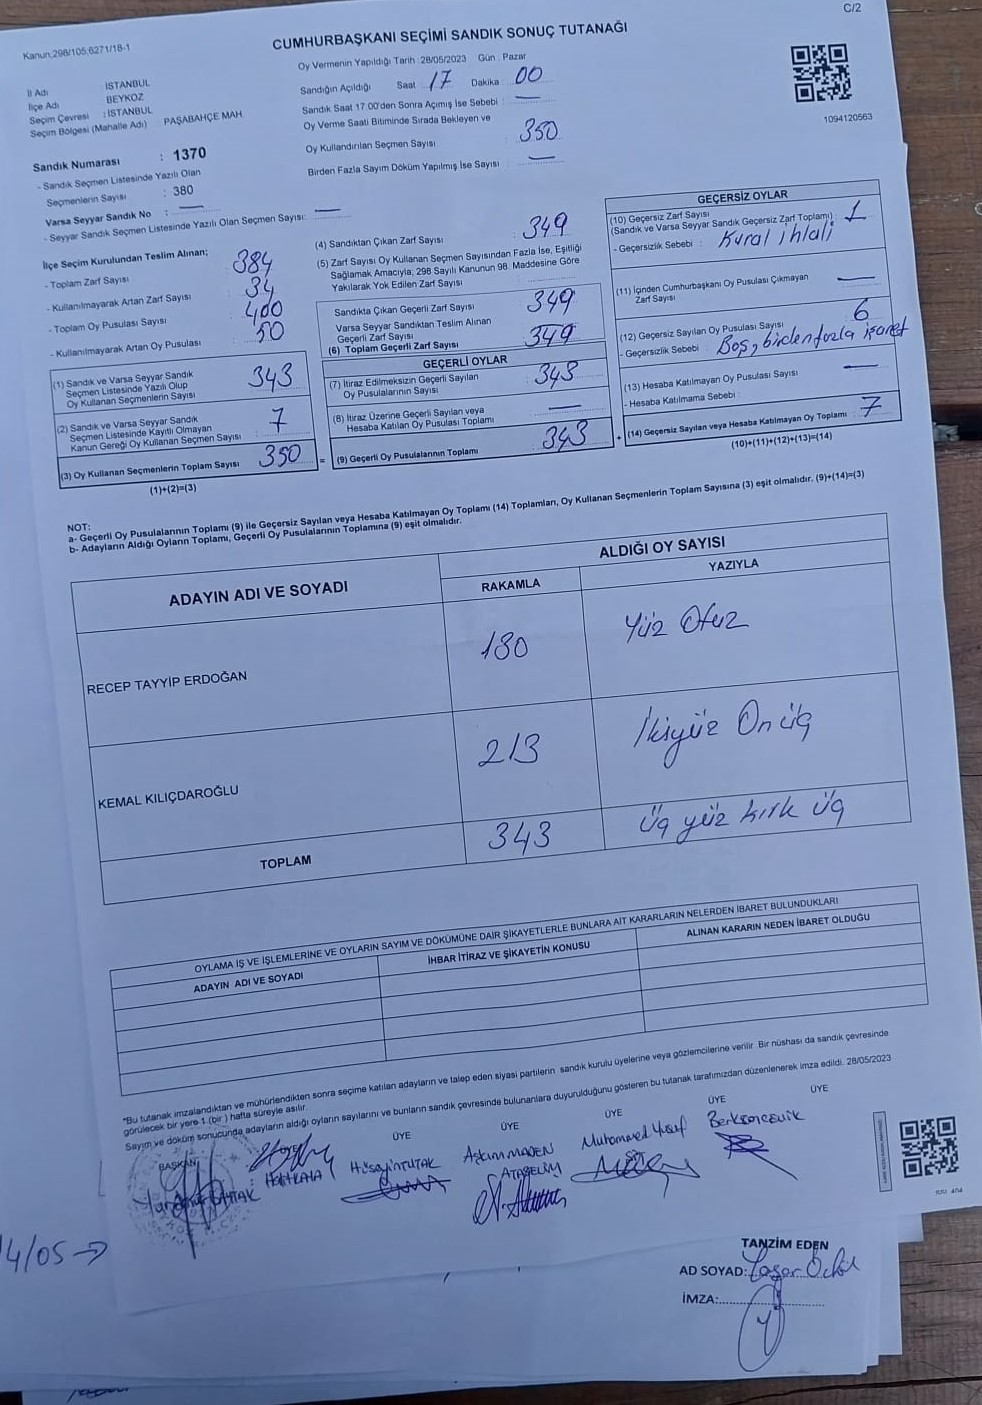 C/2
Kanun:298/105;6271/18-1
CUMHURBAŞKANI SEÇİMİ SANDIK SONUÇ TUTANAĞI
Oy Vermenin Yapıldığı Tarih : 28/05/2023 Gün : Pazar
İl Adı İSTANBUL
İlçe Adı BEYKOZ
Seçim Çevresi : İSTANBUL
Seçim Bölgesi (Mahalle Adı) PAŞABAHÇE MAH
Sandığın Açıldığı Saat 17 Dakika 00
Sandık Saat 17:00'den Sonra Açımış İse Sebebi : —
Oy Verme Saati Bitiminde Sırada Bekleyen ve
Oy Kullandırılan Seçmen Sayısı 350
Birden Fazla Sayım Döküm Yapılmış İse Sayısı —
1094120563
Sandık Numarası : 1370
- Sandık Seçmen Listesinde Yazılı Olan
Seçmenlerin Sayısı : 380
Varsa Seyyar Sandık No : —
- Seyyar Sandık Seçmen Listesinde Yazılı Olan Seçmen Sayısı: —
İlçe Seçim Kurulundan Teslim Alınan;
- Toplam Zarf Sayısı 384
- Kullanılmayarak Artan Zarf Sayısı 34
- Toplam Oy Pusulası Sayısı 400
- Kullanılmayarak Artan Oy Pusulası 50
(1) Sandık ve Varsa Seyyar Sandık
Seçmen Listesinde Yazılı Olup
Oy Kullanan Seçmenlerin Sayısı 343
(2) Sandık ve Varsa Seyyar Sandık
Seçmen Listesinde Kayıtlı Olmayan
Kanun Gereği Oy Kullanan Seçmen Sayısı 7
(3) Oy Kullanan Seçmenlerin Toplam Sayısı 350 =
(1)+(2)=(3)
(4) Sandıktan Çıkan Zarf Sayısı 349
(5) Zarf Sayısı Oy Kullanan Seçmen Sayısından Fazla İse, Eşitliği
Sağlamak Amacıyla, 298 Sayılı Kanunun 98. Maddesine Göre
Yakılarak Yok Edilen Zarf Sayısı
Sandıkta Çıkan Geçerli Zarf Sayısı 349
Varsa Seyyar Sandıktan Teslim Alınan
Geçerli Zarf Sayısı
(6) Toplam Geçerli Zarf Sayısı 349
GEÇERLİ OYLAR
(7) İtiraz Edilmeksizin Geçerli Sayılan
Oy Pusulalarının Sayısı 343
(8) İtiraz Üzerine Geçerli Sayılan veya
Hesaba Katılan Oy Pusulası Toplamı —
(9) Geçerli Oy Pusulalarının Toplamı 343 +
GEÇERSİZ OYLAR
(10) Geçersiz Zarf Sayısı
(Sandık ve Varsa Seyyar Sandık Geçersiz Zarf Toplamı) : 1
- Geçersizlik Sebebi : Kural ihlali
(11) İçinden Cumhurbaşkanı Oy Pusulası Çıkmayan
Zarf Sayısı —
(12) Geçersiz Sayılan Oy Pusulası Sayısı 6
- Geçersizlik Sebebi : Boş, birden fazla işaret
(13) Hesaba Katılmayan Oy Pusulası Sayısı —
- Hesaba Katılmama Sebebi :
(14) Geçersiz Sayılan veya Hesaba Katılmayan Oy Toplamı : 7
(10)+(11)+(12)+(13)=(14)
NOT:
a- Geçerli Oy Pusulalarının Toplamı (9) ile Geçersiz Sayılan veya Hesaba Katılmayan Oy Toplamı (14) Toplamları, Oy Kullanan Seçmenlerin Toplam Sayısına (3) eşit olmalıdır. (9)+(14)=(3)
b- Adayların Aldığı Oyların Toplamı, Geçerli Oy Pusulalarının Toplamına (9) eşit olmalıdır.
ADAYIN ADI VE SOYADI
ALDIĞI OY SAYISI
RAKAMLA YAZIYLA
RECEP TAYYİP ERDOĞAN 130 Yüz Otuz
KEMAL KILIÇDAROĞLU 213 İkiyüz On üç
TOPLAM 343 üç yüz kırk üç
OYLAMA İŞ VE İŞLEMLERİNE VE OYLARIN SAYIM VE DÖKÜMÜNE DAİR ŞİKAYETLERLE BUNLARA AİT KARARLARIN NELERDEN İBARET BULUNDUKLARI
ADAYIN ADI VE SOYADI İHBAR İTİRAZ VE ŞİKAYETİN KONUSU ALINAN KARARIN NEDEN İBARET OLDUĞU
"Bu tutanak imzalandıktan ve mühürlendikten sonra seçime katılan adayların ve talep eden siyasi partilerin sandık kurulu üyelerine veya gözlemcilerine verilir. Bir nüshası da sandık çevresinde
görülecek bir yere 1 (bir ) hafta süreyle asılır.
Sayım ve döküm sonucunda adayların aldığı oyların sayılarını ve bunların sandık çevresinde bulunanlara duyurulduğunu gösteren bu tutanak tarafımızdan düzenlenerek imza edildi. 28/05/2023
BAŞKAN ÜYE ÜYE ÜYE ÜYE ÜYE
Hüseyin TUTAK Aşkım MADEN ATABELİM Muhammed Yusuf
4/05 →
TANZİM EDEN
AD SOYAD: Yaşar
İMZA: